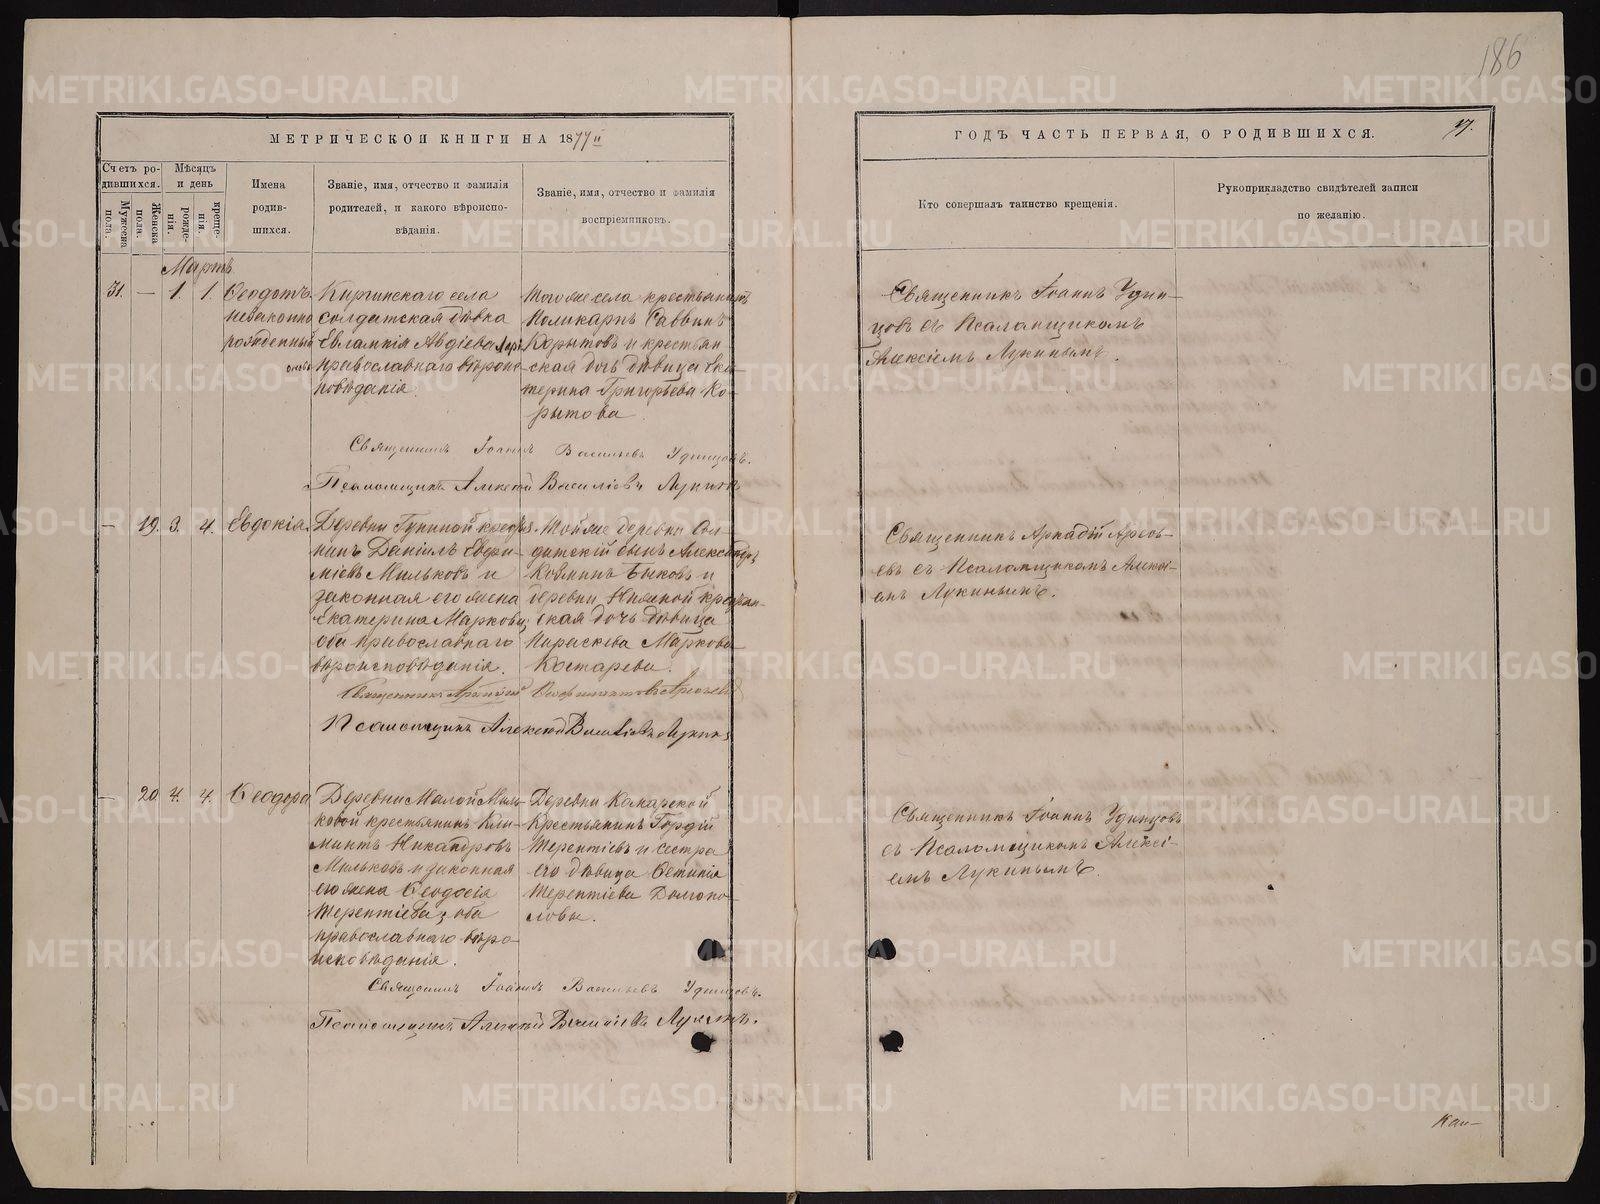 186
МЕТРИЧЕСКОЙ КНИГИ НА 1877
ГОДЪ ЧАСТЬ ПЕРВАЯ, О РОДИВШИХСЯ.
Счетъ родившихся.
Мужеска пола.
Женска пола.
Мѣсяцъ и день
рожденія.
крещенія.
Имена родившихся.
Званіе, имя, отчество и фамилія родителей, и какого вѣроисповѣданія.
Званіе, имя, отчество и фамилія воспріемниковъ.
Кто совершалъ таинство крещенія.
Рукоприкладство свидѣтелей записи по желанію.
Мартъ
31. — 1. 1. Ѳеодотъ
незаконно
рожденный
Киргинскаго села
солдатская дѣвка
Евлампія Авдіева
православнаго вѣроис-
повѣданія.
Тогоже села крестьянинъ
Поликарпъ Саввинъ
Корытовъ и крестьян
ская дочь дѣвица Ека-
терина Григорьева Ко-
рытова
Священникъ Іоаннъ Удин-
цовъ съ Псаломщикомъ
Алексіемъ Лукинымъ.
Священникъ Іоаннъ Васильевъ Удинцовъ.
Псаломщикъ Алексѣй Василіевъ Лукинъ
— 19. 3. 4. Евдокія.
Деревни Гуниной крестья
нинъ Даніилъ Евфи-
міевъ Мильковъ и
законная его жена
Екатерина Маркова,
оба православнаго
вѣроисповѣданія.
Тойже деревни Сол-
датскій сынъ Александръ
Козминъ Быковъ и
деревни Нижной крестьян-
ская дочь дѣвица
Параскева Маркова
Костарева.
Священникъ Аркадій Арсень-
евъ съ Псаломщикомъ Алексі-
емъ Лукинымъ.
Священникъ Аркадій
Псаломщикъ Алексѣй Василіевъ Лукинъ
— 20 4. 4. Ѳеодора
Деревни Малой Миль-
ковой крестьянинъ Кли-
ментъ Никандровъ
Мильковъ и законная
его жена Ѳеодосія
Терентіева, оба
православнаго вѣро-
исповѣданія.
Деревни Комарской
Крестьянинъ Гордій
Терентіевъ и сестра
его дѣвица Ѳетинія
Терентіева Долгопо-
ловы.
Священникъ Іоаннъ Удинцовъ
съ Псаломщикомъ Алексі-
емъ Лукинымъ.
Священникъ Іоаннъ Васильевъ Удинцовъ.
Псаломщикъ Алексѣй Василіевъ Лукинъ.
METRIKI.GASO-URAL.RU